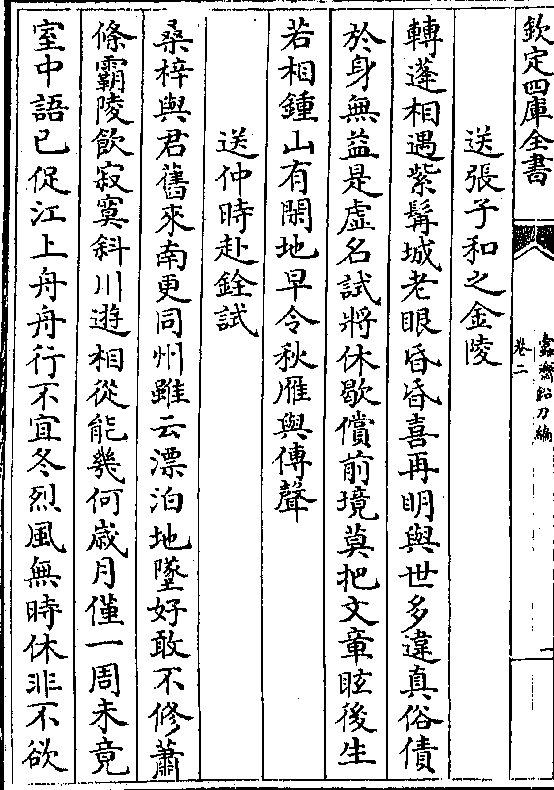 欽定四庫全書
蠹齋鉛刀編
卷二
送張子和之金陵
轉蓬相遇紫髯城老眼昏昏喜再明與世多違真俗債
於身無益是虛名試將休歇償前境莫把文章眩後生
若相鍾山有閑地早令秋雁與傳聲
送仲時赴銓試
桑梓與君舊來南更同州雖云漂泊地墜好敢不修蕭
條霸陵飲寂寞斜川遊相從能幾何歲月僅一周未竟
室中語已促江上舟舟行不宜冬烈風無時休非不欲